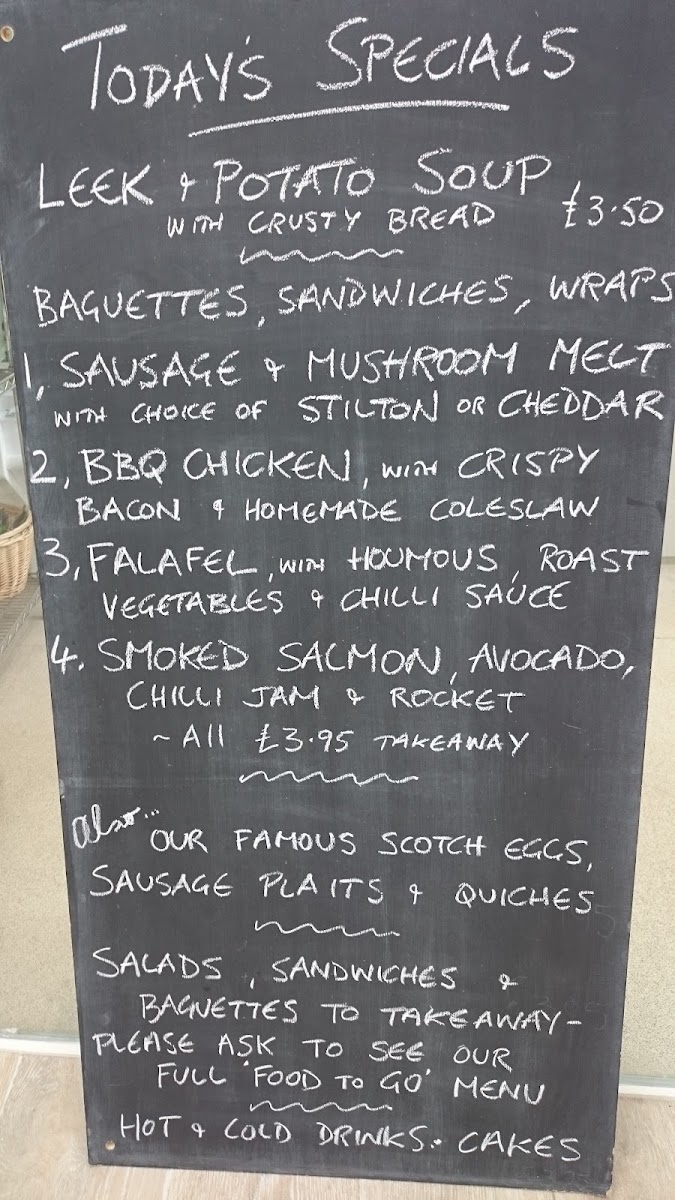 TODAY'S SPECIALS
LEEK & POTATO SOUP
WITH CRUSTY BREAD £3.50
BAGUETTES, SANDWICHES, WRAPS
1, SAUSAGE & MUSHROOM MELT
WITH CHOICE OF STILTON OR CHEDDAR
2, BBQ CHICKEN, WITH CRISPY
BACON & HOMEMADE COLESLAW
3, FALAFEL, WITH HOUMOUS, ROAST
VEGETABLES & CHILLI SAUCE
4. SMOKED SALMON, AVOCADO,
CHILLI JAM & ROCKET
~ All £3.95 TAKEAWAY
also... OUR FAMOUS SCOTCH EGGS,
SAUSAGE PLAITS & QUICHES
SALADS, SANDWICHES &
BAGUETTES TO TAKEAWAY-
PLEASE ASK TO SEE OUR
FULL 'FOOD TO GO' MENU
HOT & COLD DRINKS. CAKES